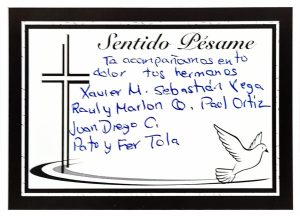 Sentido Pésame
Te acompañamos en tu
dolor tus hermanos
Xavier M. Sebastián Vega
Raul y Marlon O. Paúl Ortiz
Juan Diego C.
Pato y Fer Tola